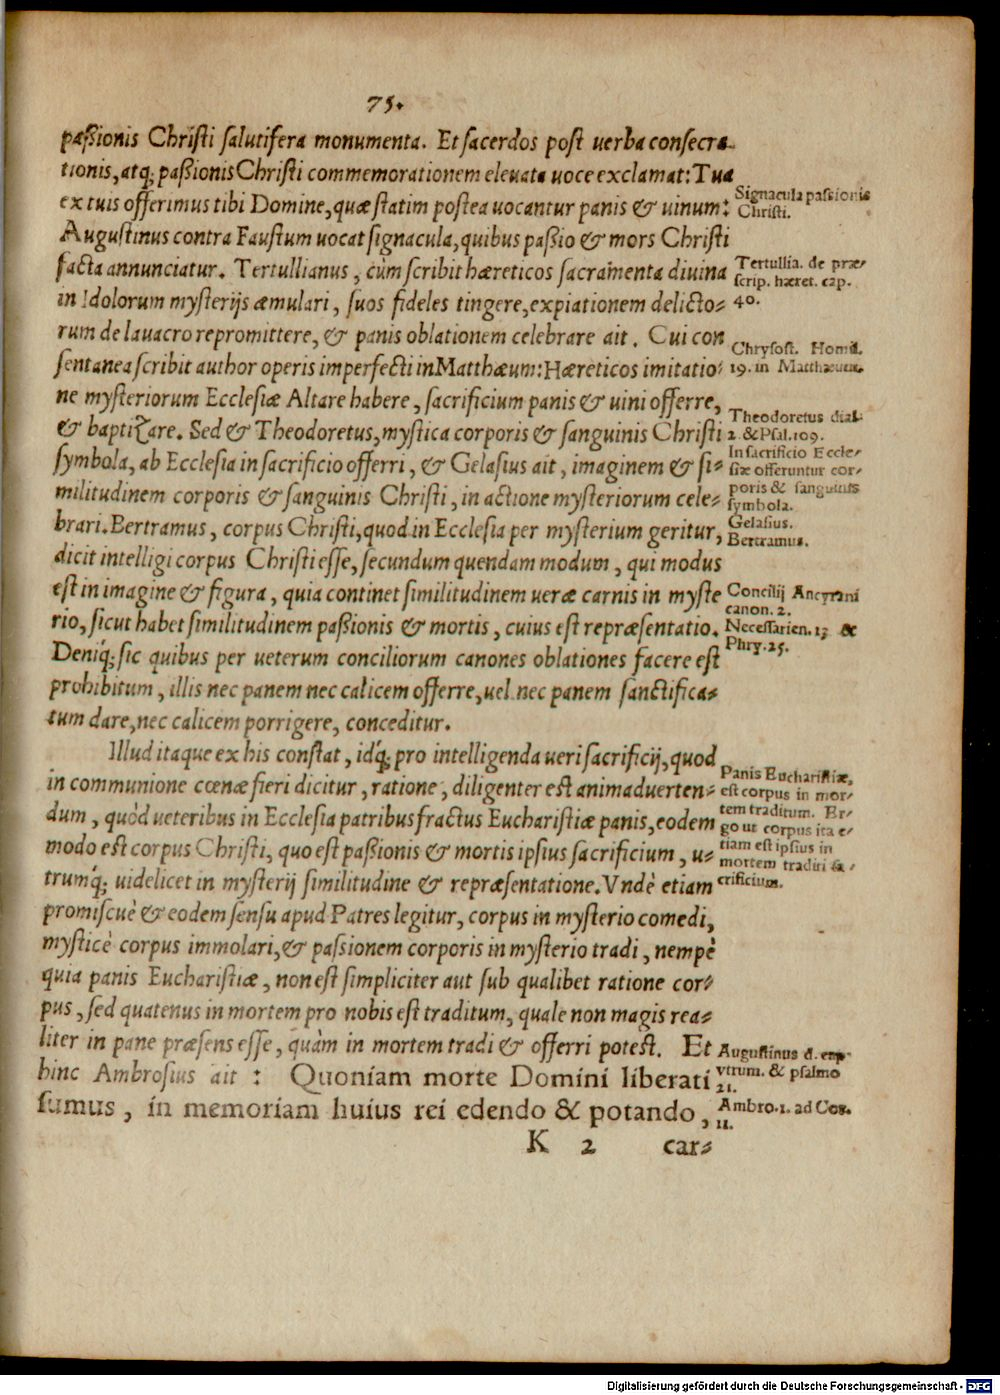 75.
paßionis Christi salutifera monumenta. Et sacerdos post uerba consecra-
tionis, atq; paßionis Christi commemorationem eleuata uoce exclamat: Tua
ex tuis offerimus tibi Domine, quæ statim postea uocantur panis & uinum:
Signacula passionis
Christi.
Augustinus contra Faustum uocat signacula, quibus paßio & mors Christi
facta annunciatur. Tertullianus, cùm scribit hæreticos sacramenta diuina
Tertullia. de præ-
scrip. hæret. cap.
40.
in Idolorum mysterijs æmulari, suos fideles tingere, expiationem delicto-
rum de lauacro repromittere, & panis oblationem celebrare ait. Cui con
sentanea scribit author operis imperfecti in Matthæum: Hæreticos imitatio-
Chrysost. Homil.
19. in Matthæum.
ne mysteriorum Ecclesiæ Altare habere, sacrificium panis & uini offerre,
& baptizare. Sed & Theodoretus, mystica corporis & sanguinis Christi
Theodoretus dial.
2. & Psal. 109.
symbola, ab Ecclesia in sacrificio offerri, & Gelasius ait, imaginem & si-
In sacrificio Eccle-
siæ offeruntur cor-
poris & sanguinis
symbola.
militudinem corporis & sanguinis Christi, in actione mysteriorum cele-
brari. Bertramus, corpus Christi, quod in Ecclesia per mysterium geritur,
Gelasius.
Bertramus.
dicit intelligi corpus Christi esse, secundum quendam modum, qui modus
est in imagine & figura, quia continet similitudinem ueræ carnis in myste
Concilij Ancyrani
canon. 2.
rio, sicut habet similitudinem paßionis & mortis, cuius est repræsentatio.
Necessarien. 13 &
Phry. 25.
Deniq; sic quibus per ueterum conciliorum canones oblationes facere est
prohibitum, illis nec panem nec calicem offerre, uel nec panem sanctifica-
tum dare, nec calicem porrigere, conceditur.
Illud itaque ex his constat, idq; pro intelligenda ueri sacrificij, quod
in communione cœnæ fieri dicitur, ratione, diligenter est animaduerten-
Panis Eucharistiæ,
est corpus in mor-
tem traditum. Er-
go ut corpus ita e-
tiam est ipsius in
mortem traditi sa-
crificium.
dum, quòd ueteribus in Ecclesia patribus fractus Eucharistiæ panis, eodem
modo est corpus Christi, quo est paßionis & mortis ipsius sacrificium, u-
trumq; uidelicet in mysterij similitudine & repræsentatione. Vndè etiam
promiscuè & eodem sensu apud Patres legitur, corpus in mysterio comedi,
mysticè corpus immolari, & passionem corporis in mysterio tradi, nempè
quia panis Eucharistiæ, non est simpliciter aut sub qualibet ratione cor-
pus, sed quatenus in mortem pro nobis est traditum, quale non magis rea-
liter in pane præsens esse, quàm in mortem tradi & offerri potest. Et
Augustinus d.
vtrum. & psalmo
21.
hinc Ambrosius ait : Quoniam morte Domini liberati
sumus, in memoriam huius rei edendo & potando,
Ambro. 1. ad Cor.
11.
K 2 car-
Digitalisierung gefördert durch die Deutsche Forschungsgemeinschaft - DFG